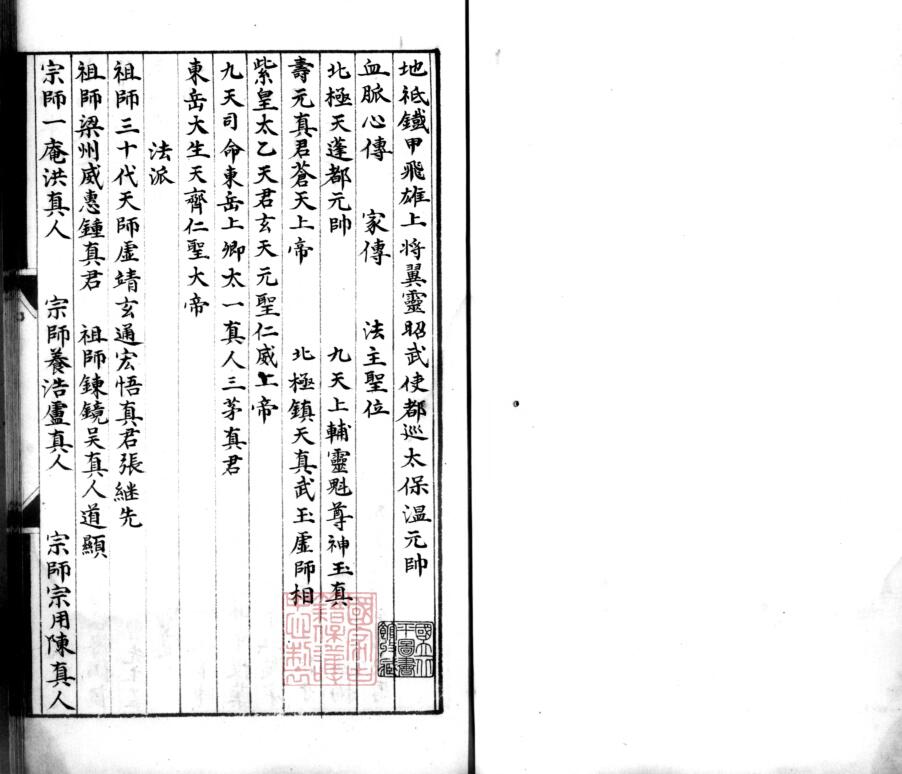 地祇鐵甲飛雄上将翼靈昭武使都巡太保温元帥
血脈心傳　家傳　法主聖位
北極天蓬都元帥　九天上輔靈魁尊神玉真
壽元真君蒼天上帝　北極鎮天真武玉虛師相
紫皇太乙天君玄天元聖仁威上帝
九天司命東岳上卿太一真人三茅真君
東岳大生天齊仁聖大帝
法派
祖師三十代天師虛靖玄通宏悟真君張継先
祖師梁州威惠鍾真君　祖師鍊鏡吴真人道顯
宗師一庵洪真人　宗師養浩盧真人　宗師宗用陳真人
國立北
平圖書
館收藏